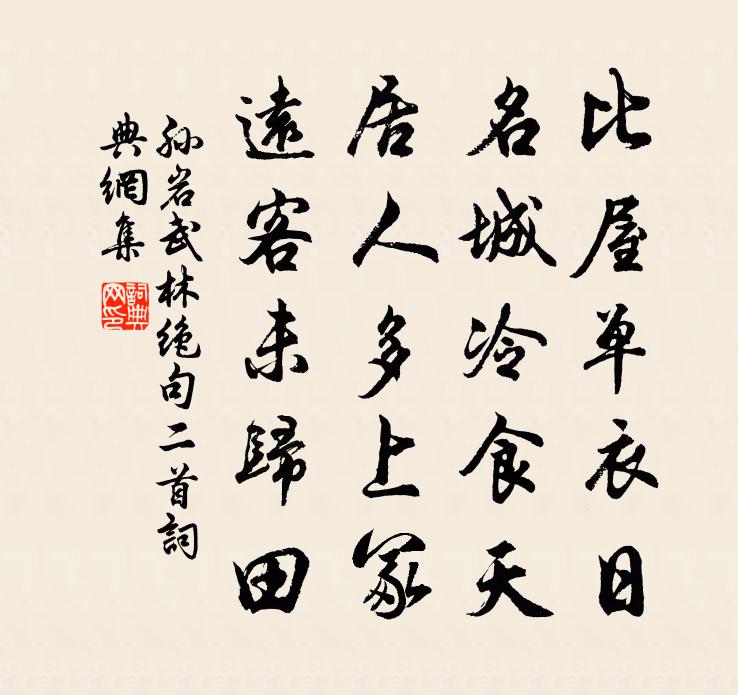 比屋单衣日
名城冷食天
居人多上冢
遠客未歸田
孙岩武林絶句二首詞
典網集
詞典
网印